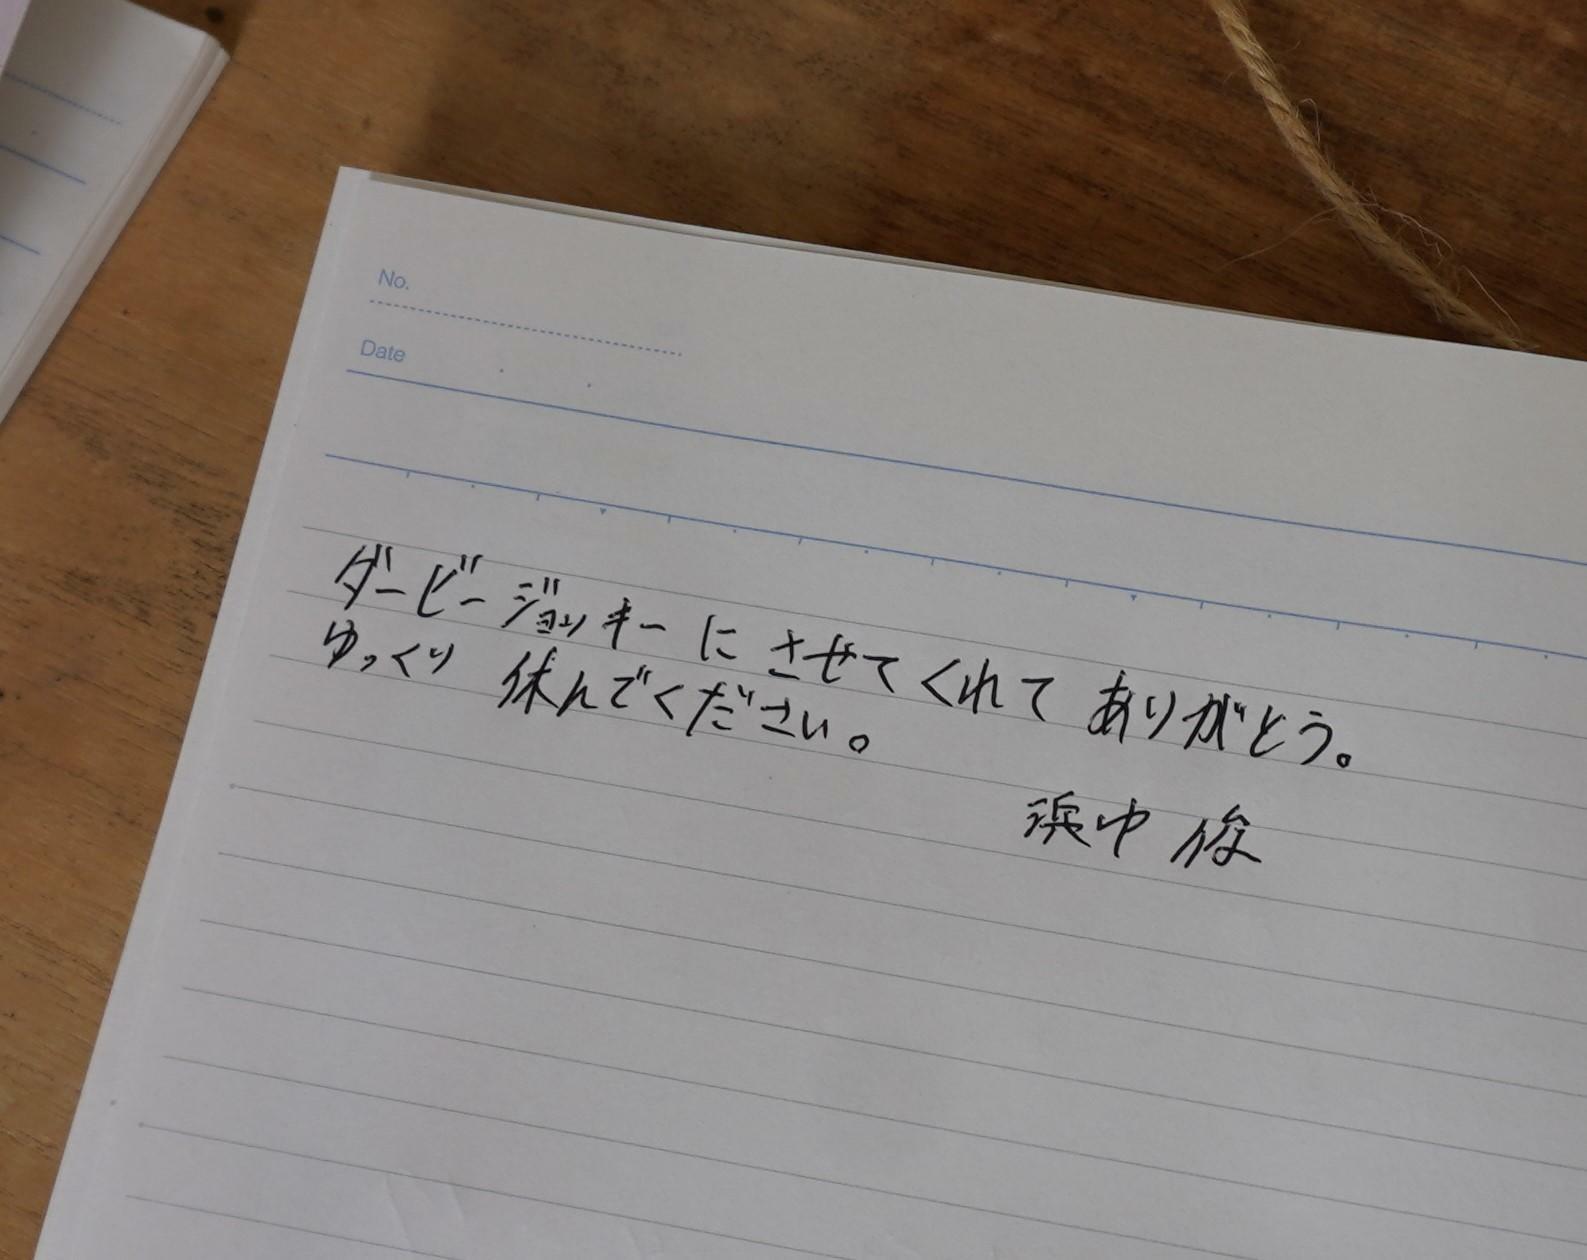 No.
Date
ダービージョッキーに させてくれて ありがとう。
ゆっくり 休んでください。
浜中 俊